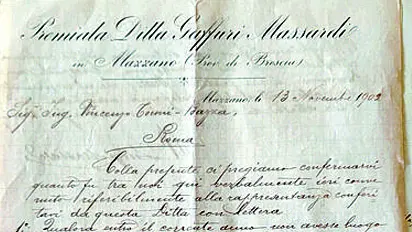 Premiata Ditta Gaffuri Massardi
in Mazzano (Prov. di Brescia)
Mazzano, li 13 Novembre 1902
Sig. Ing. Vincenzo Tonni-Bazza,
Roma
Colla presente, ci pregiamo confermarvi
quanto fu tra noi qui verbalmente ieri conve
nuto, riferibilmente alla rappresentanza conferi
tavi da questa Ditta con Lettera
1° Qualora entro il corrente anno non avesse luogo